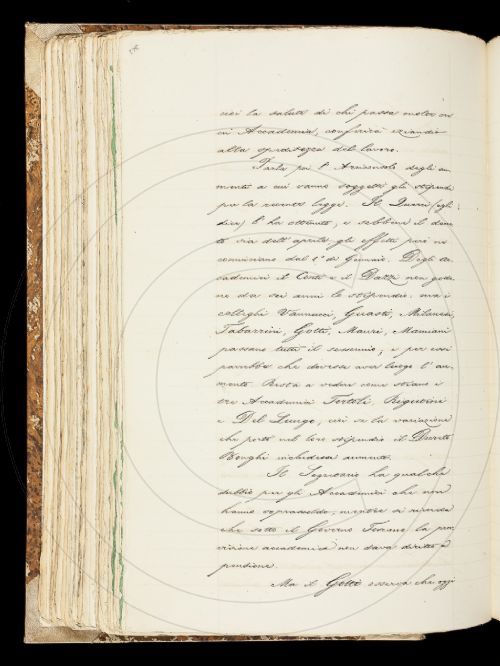 cioè la salute di chi passa molte ore
in Accademia, conferirà eziandio
alla speditezza del lavoro.
Parla poi l'Arciconsolo degli au-
menti a cui vanno soggetti gli stipendi
per la recente legge. Il Duzzi (egli
dice) l'ha ottenuto, e sebbene il decre-
to sia dell'aprile gli effetti però in-
cominciano dal 1º di Gennaio. Degli Ac-
cademici il Conti e il Dazzi non godo-
no da sei anni lo stipendio: ma i
colleghi Vannucci, Guasti, Milanesi,
Tabarrini, Gotti, Mauri, Mamiani
passano tutti il sessennio; e per essi
parrebbe che dovesse aver luogo l'au-
mento. Resta a vedere come stiano i
tre Accademici Tortoli, Rigutini
e Del Lungo, cioè se la variazione
che portò nel loro stipendio il Decreto
Bonghi inchiudesse aumento.
Il Segretario ha qualche
dubbio per gli Accademici che non
hanno soprassoldo; mentre si ricorda
che sotto il Governo Toscano la prov-
visione accademica non dava diritto a
pensione.
Ma il Gotti osserva che oggi